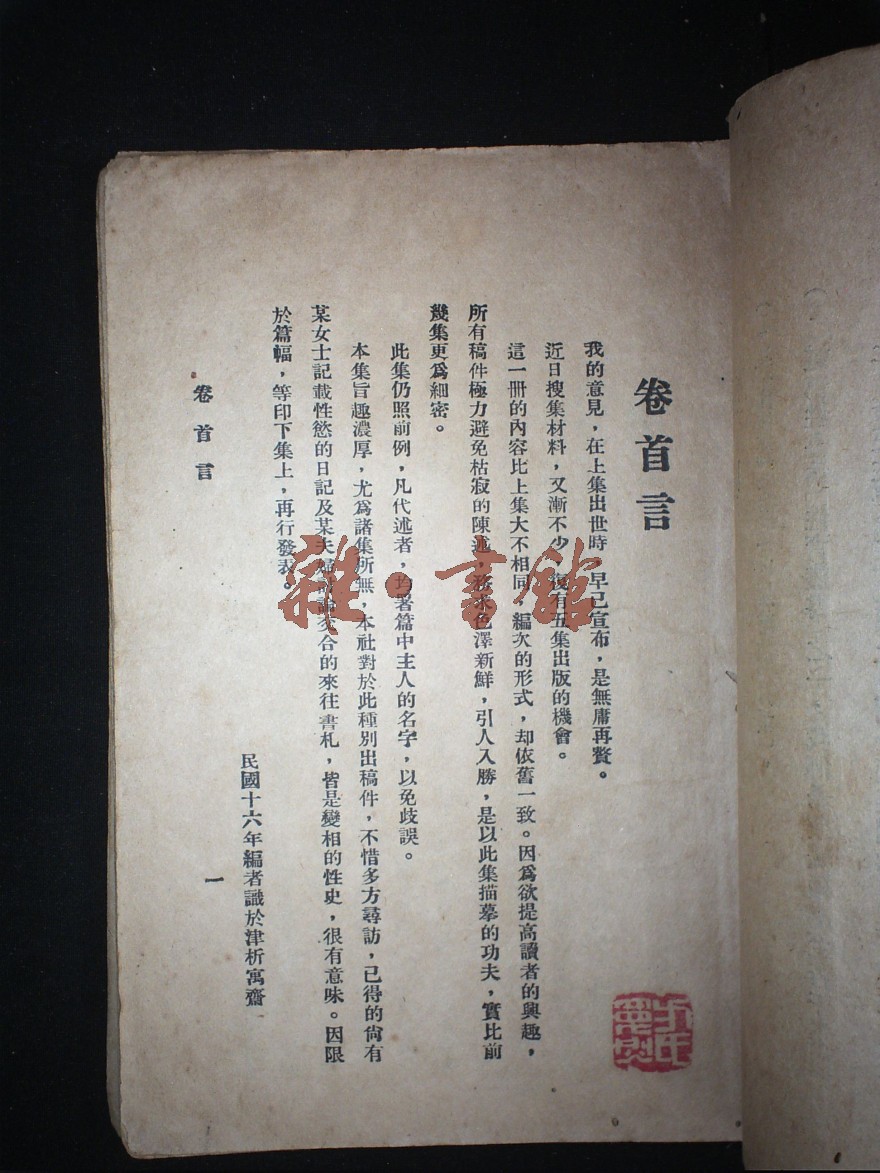 卷首言
我的意見，在上集出世時，早已宣布，是無庸再贅。
近日搜集材料，又漸不少，復有五集出版的機會。
這一冊的內容比上集大不相同，編次的形式，却依舊一致。因爲欲提高讀者的興趣，
所有稿件極力避免枯寂的陳述，務求色澤新鮮，引人入勝，是以此集描摹的功夫，實比前
幾集更爲細密。
此集仍照前例，凡代述者，均署篇中主人的名字，以免歧誤。
本集旨趣濃厚，尤爲諸集所無，本社對於此種別出稿件，不惜多方尋訪，已得的尙有
某女士記載性慾的日記及某夫婦討論交合的來往書札，皆是變相的性史，很有意味。因限
於篇幅，等印下集上，再行發表。
民國十六年編者識於津析寓齋
卷首言
一
雜·書館